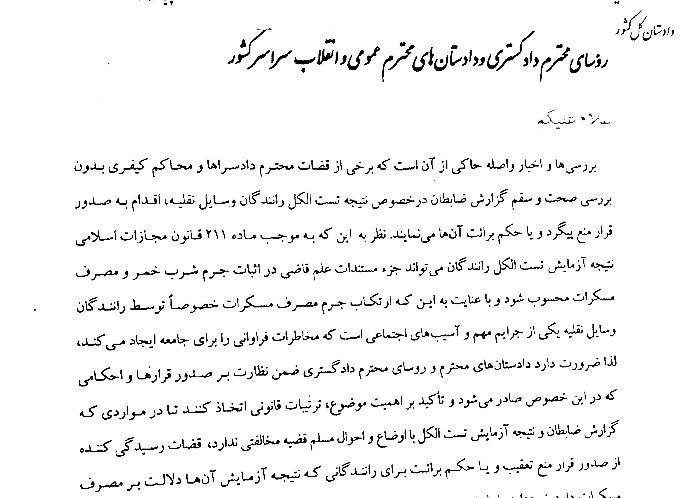 دادستان کل کشور
رؤسای محترم دادگستری و دادستان‌های محترم عمومی و انقلاب سراسر کشور
علیکم
بررسی‌ها و اخبار واصله حاکی از آن است که برخی از قضات محترم دادسراها و محاکم کیفری بدون
بررسی صحت و سقم گزارش ضابطان درخصوص نتیجه تست الکل رانندگان وسایل نقلیه، اقدام به صدور
قرار منع پیگرد و یا حکم برائت آن‌ها می‌نمایند. نظر به این که به موجب ماده ۲۱۱ قانون مجازات اسلامی
نتیجه آزمایش تست الکل رانندگان می‌تواند جزء مستندات علم قاضی در اثبات جرم شرب خمر و مصرف
مسکرات محسوب شود و با عنایت به این که ارتکاب جرم مصرف مسکرات خصوصاً توسط رانندگان
وسایل نقلیه یکی از جرایم مهم و آسیب‌های اجتماعی است که مخاطرات فراوانی را برای جامعه ایجاد می‌کند،
لذا ضرورت دارد دادستان‌های محترم و روسای محترم دادگستری ضمن نظارت بر صدور قرارها و احکامی
که در این خصوص صادر می‌شود و تأکید بر اهمیت موضوع، ترتیبات قانونی اتخاذ کنند تا در مواردی که
گزارش ضابطان و نتیجه آزمایش تست الکل با اوضاع و احوال مسلم قضیه مخالفتی ندارد، قضات رسیدگی کننده
از صدور قرار منع تعقیب و یا حکم برائت برای رانندگانی که نتیجه آزمایش آن‌ها دلالت بر مصرف